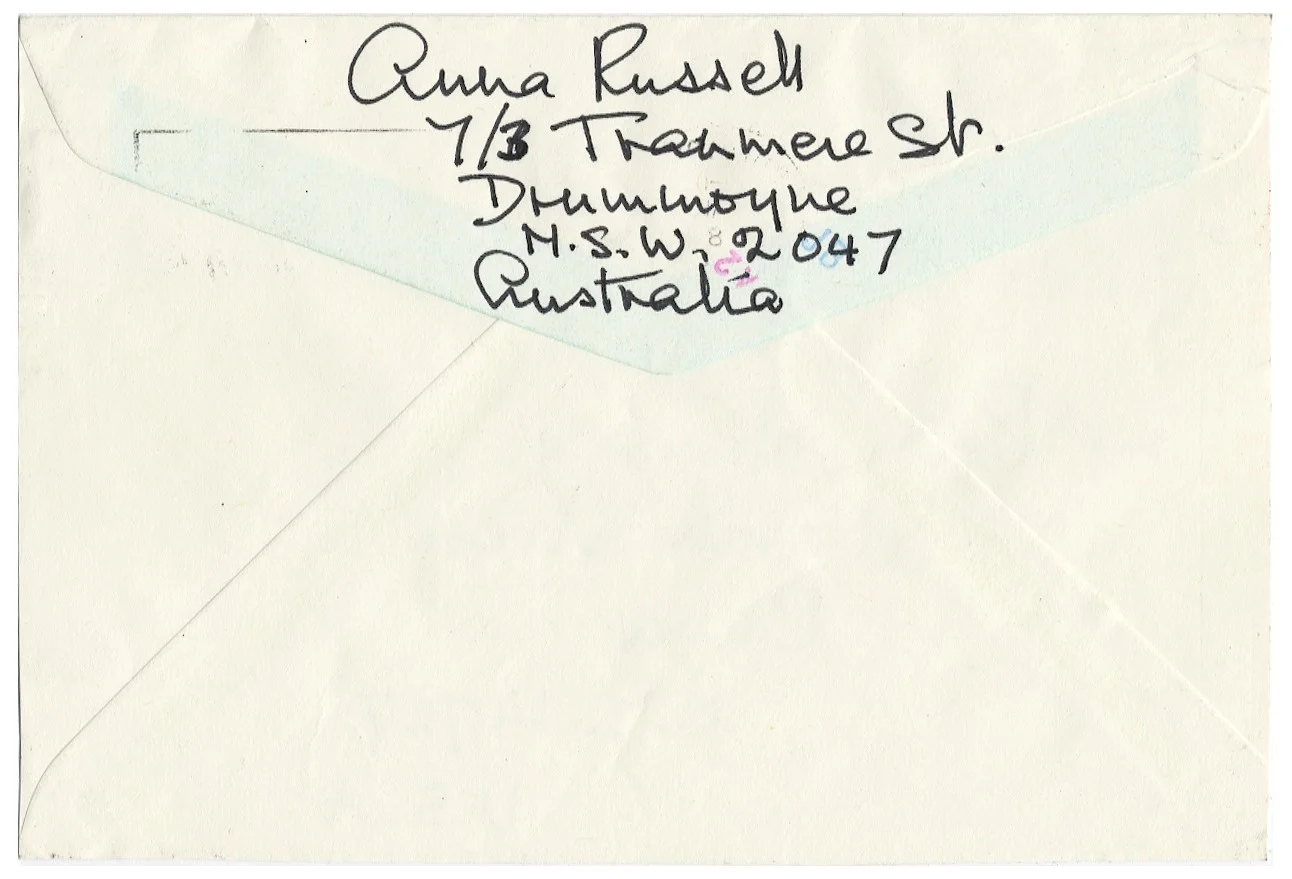 Anna Russell
7/3 Tranmere St.
Drummoyne
N.S.W. 2047
Australia